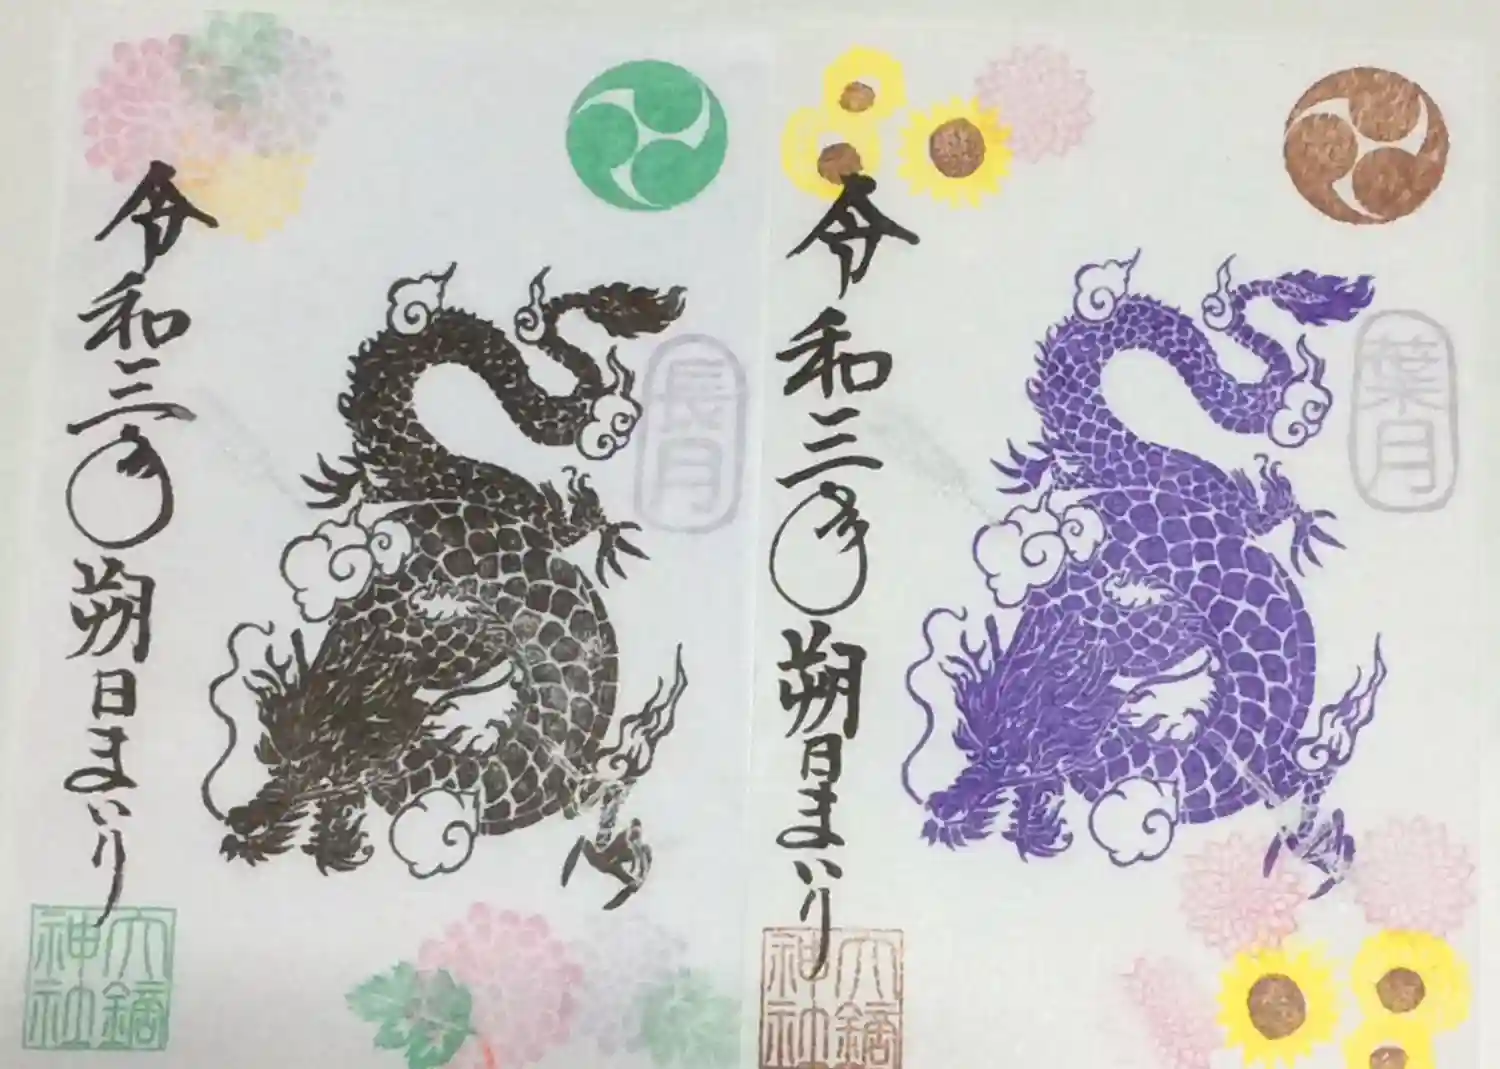 令和三年朔日まいり
長月
六鏑神社
令和三年朔日まいり
葉月
六鏑神社